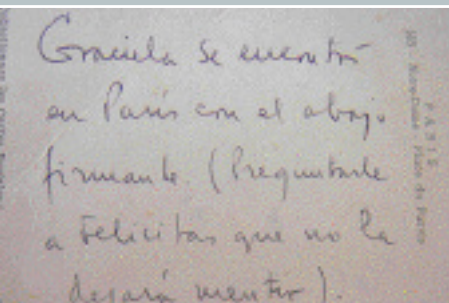 Graciela se encontró
en París con el abajo
firmante. (Preguntarle
a Felicitas que no la
dejará mentir).
PARIS